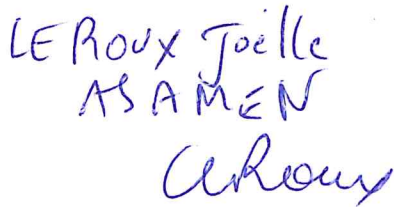 LEROUX Joëlle
ASAMEN
LeRoux